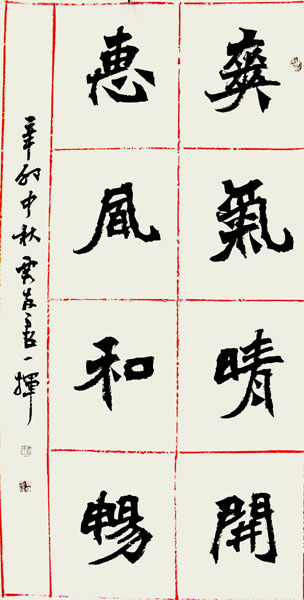 爽氣晴開
惠風和暢
辛卯中秋一揮